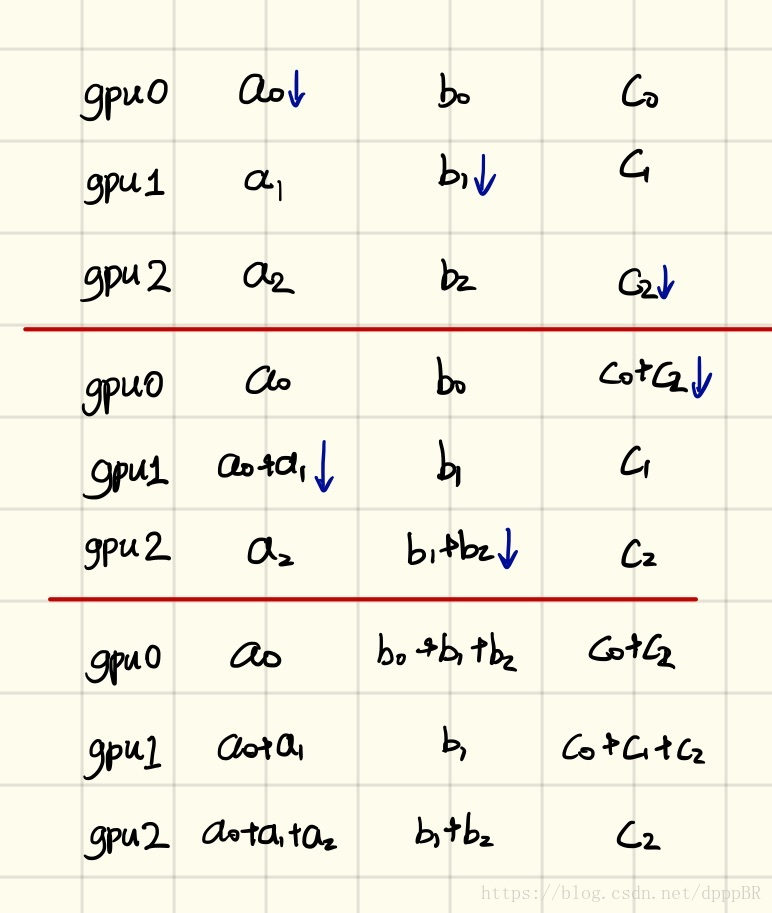 gpu0 a₀↓ b₀ c₀
gpu1 a₁ b₁↓ c₁
gpu2 a₂ b₂ c₂↓
gpu0 a₀ b₀ c₀+c₂↓
gpu1 a₀+a₁↓ b₁ c₁
gpu2 a₂ b₁+b₂↓ c₂
gpu0 a₀ b₀+b₁+b₂ c₀+c₂
gpu1 a₀+a₁ b₁ c₀+c₁+c₂
gpu2 a₀+a₁+a₂ b₁+b₂ c₂
https://blog.csdn.net/dpppBR